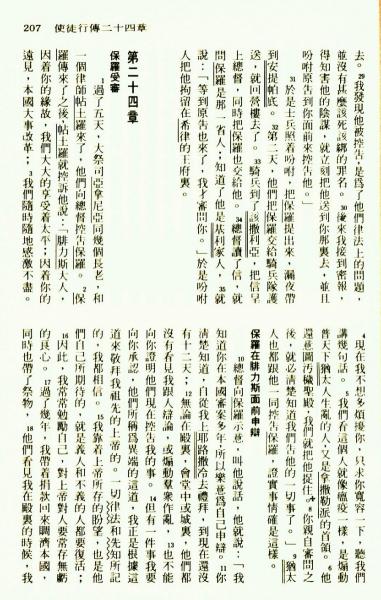 207　使徒行傳二十四章
去。29我發現他被控告，是爲了他們律法上的問題，
並沒有甚麼該死該綁的罪名。30後來我接到密報，
得知害他的陰謀，就立刻把他送到你那裏去，並且
吩咐原告到你面前來控告他。」
31於是士兵照着吩咐，把保羅提出來，漏夜帶
到安提帕底。32第二天，他們把保羅交給騎兵隊護
送，就回營樓去了。33騎兵到了該撒利亞，把信呈
上總督，同時把保羅也交給他。34總督讀了信，就
問保羅是那一省人；知道了他是基利家人，35就
說：「等到原告也來了，我才審問你。」於是吩咐
人把他拘留在希律的王府裏。
第二十四章
保羅受審
1過了五天，大祭司亞拿尼亞同幾個長老，和
一個律師帖土羅來了，他們向總督控告保羅。2保
羅傳來了之後，帖土羅就控訴他說：「腓力斯大人，
因着你的緣故，我們大大的享受着太平；因着你的
遠見，本國大事改革；3我們隨時隨地感激不盡。
4現在我不想多煩擾你，只求你寬容一下，聽我們
講幾句話。5我們看這個人就像瘟疫一樣，是煽動
普天下猶太人作亂的人，又是拿撒勒派的首領。6他
還意圖汚穢聖殿，我們就把他捉住。8你親自審問之
後，就必清楚知道我們告他的一切事了。」9猶太
人也都跟他一同控告保羅，證實事情確是這樣。
保羅在腓力斯面前申辯
10總督向保羅示意，叫他說話，他就說：「我
知道你在本國審案多年，所以樂意爲自己申辯。11你
清楚知道，自從我上耶路撒冷去禮拜，到現在還沒
有十二天；12無論在殿裏，會堂中或城裏，他們都
沒有看見我跟人辯論，或煽動羣衆作亂，13也不能
向你證明他們現在控告我的事。14但有一件事我要
向你承認，他們所稱爲異端的這道，我正是根據這
道來敬拜我祖先的上帝的。一切律法和先知所記
的，我都相信。15我靠着上帝所存的盼望，也是他
們自己所期待的，就是義人和不義的人都要復活；
16因此，我常常勉勵自己，對上帝對人要常存無虧
的良心。17過了幾年，我帶着捐款回來賙濟本國，
同時也帶了祭物，18他們看見我在殿裏的時候，我